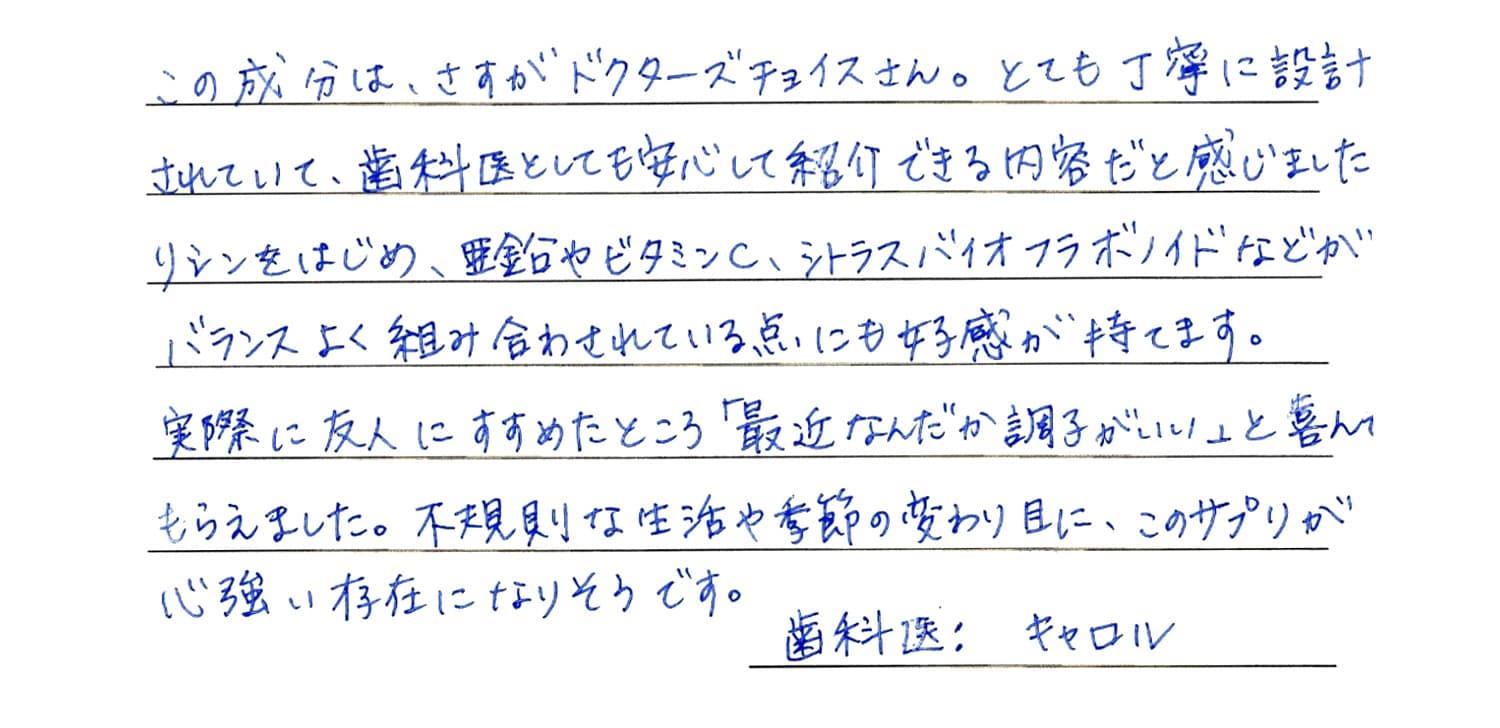 この成分は、さすがドクターズチョイスさん。とても丁寧に設計
されていて、歯科医としても安心して紹介できる内容だと感じました
リシンをはじめ、亜鉛やビタミンC、シトラスバイオフラボノイドなどが
バランスよく組み合わされている点にも好感が持てます。
実際に友人にすすめたところ「最近なんだか調子がいい」と喜んで
もらえました。不規則な生活や季節の変わり目に、このサプリが
心強い存在になりそうです。
歯科医： キャロル